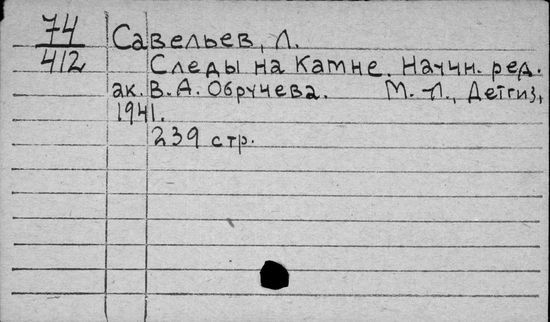 74
412
Савельев, Л.
Следы на Камне. Научн. ред.
ак. В. А. Обручева. М.-Л., Детгиз,
1941.
239 стр.